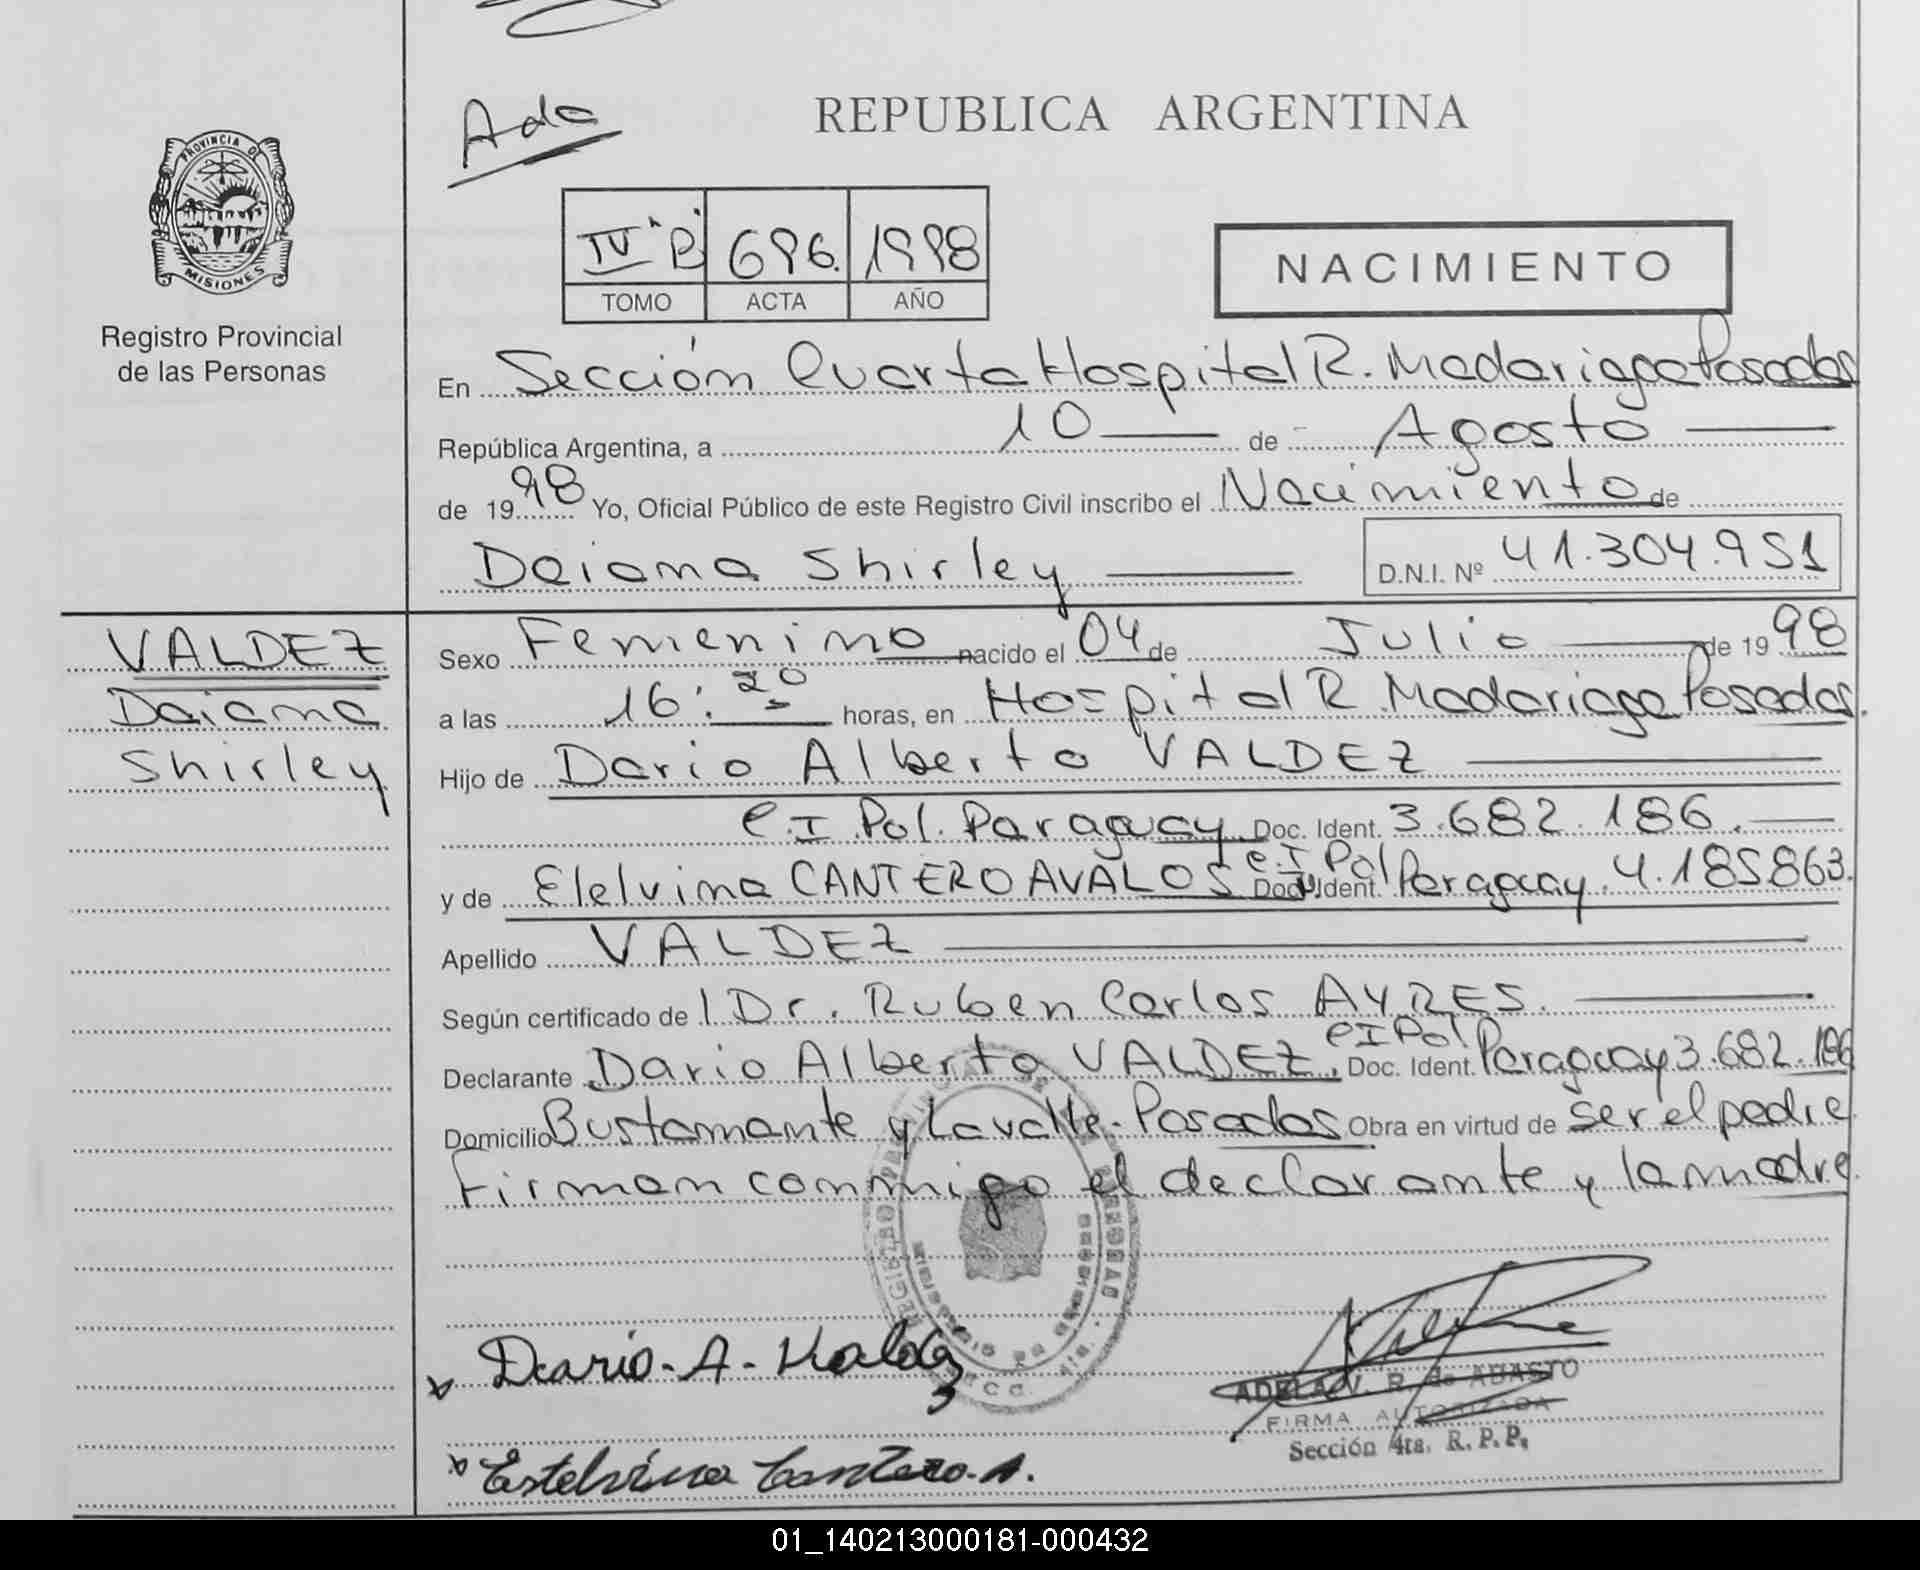 Ada
REPUBLICA ARGENTINA
PROVINCIA DE
MISIONES
Registro Provincial
de las Personas
IV "B" 696. 1998
TOMO ACTA AÑO
NACIMIENTO
En Sección Cuarta Hospital R. Madariaga Posadas
República Argentina, a 10 de Agosto
de 1998 Yo, Oficial Público de este Registro Civil inscribo el Nacimiento de
Daiana Shirley D.N.I. Nº 41.304.951
VALDEZ
Daiana
Shirley
Sexo Femenino nacido el 04 de Julio de 1998
a las 16:20 horas, en Hospital R. Madariaga Posadas.
Hijo de Dario Alberto VALDEZ
C.I. Pol. Paraguay Doc. Ident. 3.682.186.
y de Elelvina CANTERO AVALOS C.I Pol Doc. Ident. Paraguay. 4.185863.
Apellido VALDEZ
Según certificado de l Dr. Ruben Carlos AYRES.
Declarante Dario Alberto VALDEZ. CI Pol Doc. Ident. Paraguay 3.682.186
Domicilio Bustamante y Lavalle. Posadas Obra en virtud de ser el padre
Firman conmigo el declarante y la madre.
Dario - A - Valdez
ADELA V. R. de ABASTO
FIRMA AUTORIZADA
Sección 4ta. R. P. P.
Estelvina Cantero. A.
01_140213000181-000432